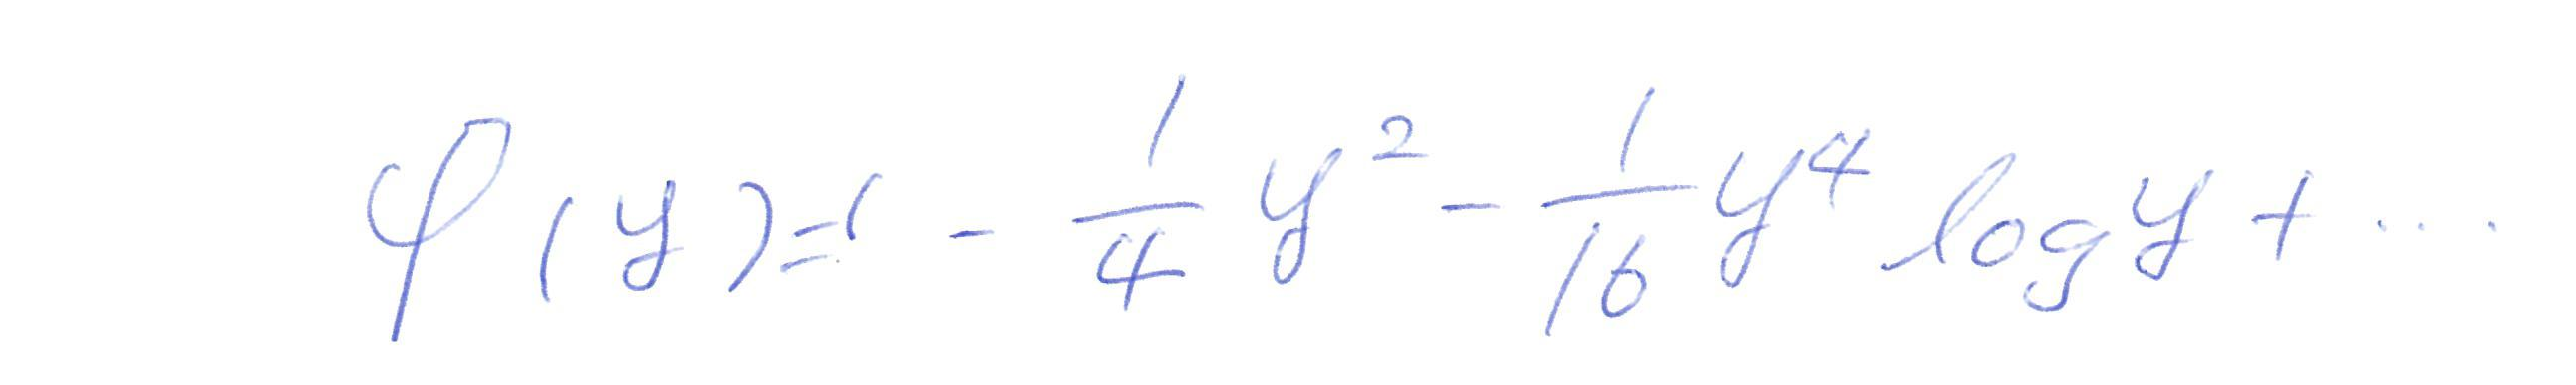 φ(y)=1 - \frac{1}{4} y^2 - \frac{1}{16} y^4 log y + ...